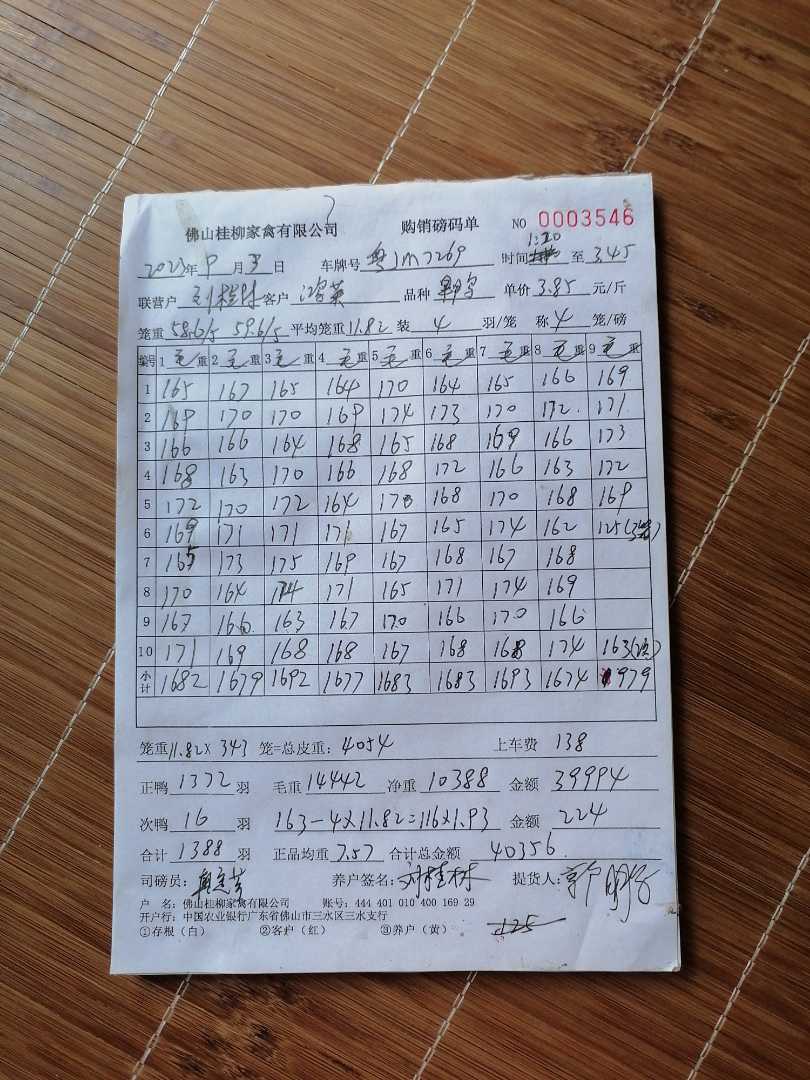 佛山桂柳家禽有限公司 购销磅码单 NO 0003546
2023年9月3日 车牌号 粤JM7269 时间 1:20 至 3:45
联营户 刘桂林 客户 鸿英 品种 单价 3.85 元/斤
笼重 58.6/5 59.6/5 平均笼重 11.82 装 4 羽/笼 称 4 笼/磅
编号 1 毛重 2 毛重 3 毛重 4 毛重 5 毛重 6 毛重 7 毛重 8 毛重 9 毛重
1 165 167 165 164 170 164 165 166 169
2 169 170 170 169 174 173 170 172 171
3 166 166 164 168 165 168 169 166 173
4 168 163 170 166 168 172 166 163 172
5 172 170 172 164 170 168 170 168 169
6 169 171 171 171 167 165 174 162 125(3笼)
7 165 173 175 169 167 168 167 168
8 170 164 174 171 165 171 174 169
9 167 166 163 167 170 166 170 166
10 171 169 168 168 167 168 168 174 163(次)
小计 1682 1679 1692 1677 1683 1683 1693 1674 979
笼重 11.82 × 343 笼=总皮重: 4054 上车费 138
正鸭 1372 羽 毛重 14442 净重 10388 金额 39994
次鸭 16 羽 163-4×11.82=116×1.93 金额 224
合计 1388 羽 正品均重 7.57 合计总金额 40356
司磅员: 养户签名: 刘桂林 提货人:
户 名: 佛山桂柳家禽有限公司 账号: 444 401 010 400 169 29
开户行: 中国农业银行广东省佛山市三水区三水支行
①存根（白） ②客户（红） ③养户（黄） 125